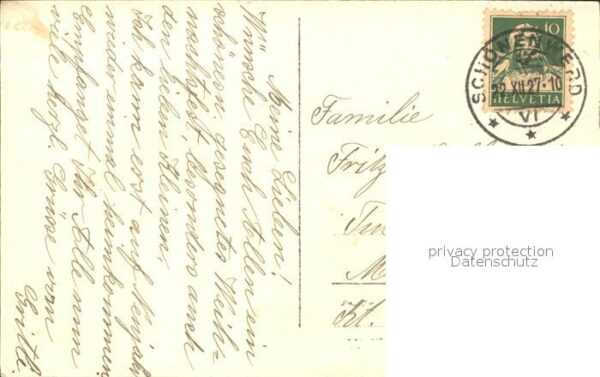 Meine Lieben!
Wünsche Euch Allen ein
schönes, gesegnetes Weih-
nachtsfest, besonders auch
den lieben Kleinen.
Ich kann erst auf Neujahr
wieder einmal heimkommen.
Empfanget Ihr Alle nun
viele herzl. Grüsse von
Familie
Fritz
Kt.
10
HELVETIA
SCHÖNENWERD
22.XII.27-10
VI
privacy protection
Datenschutz